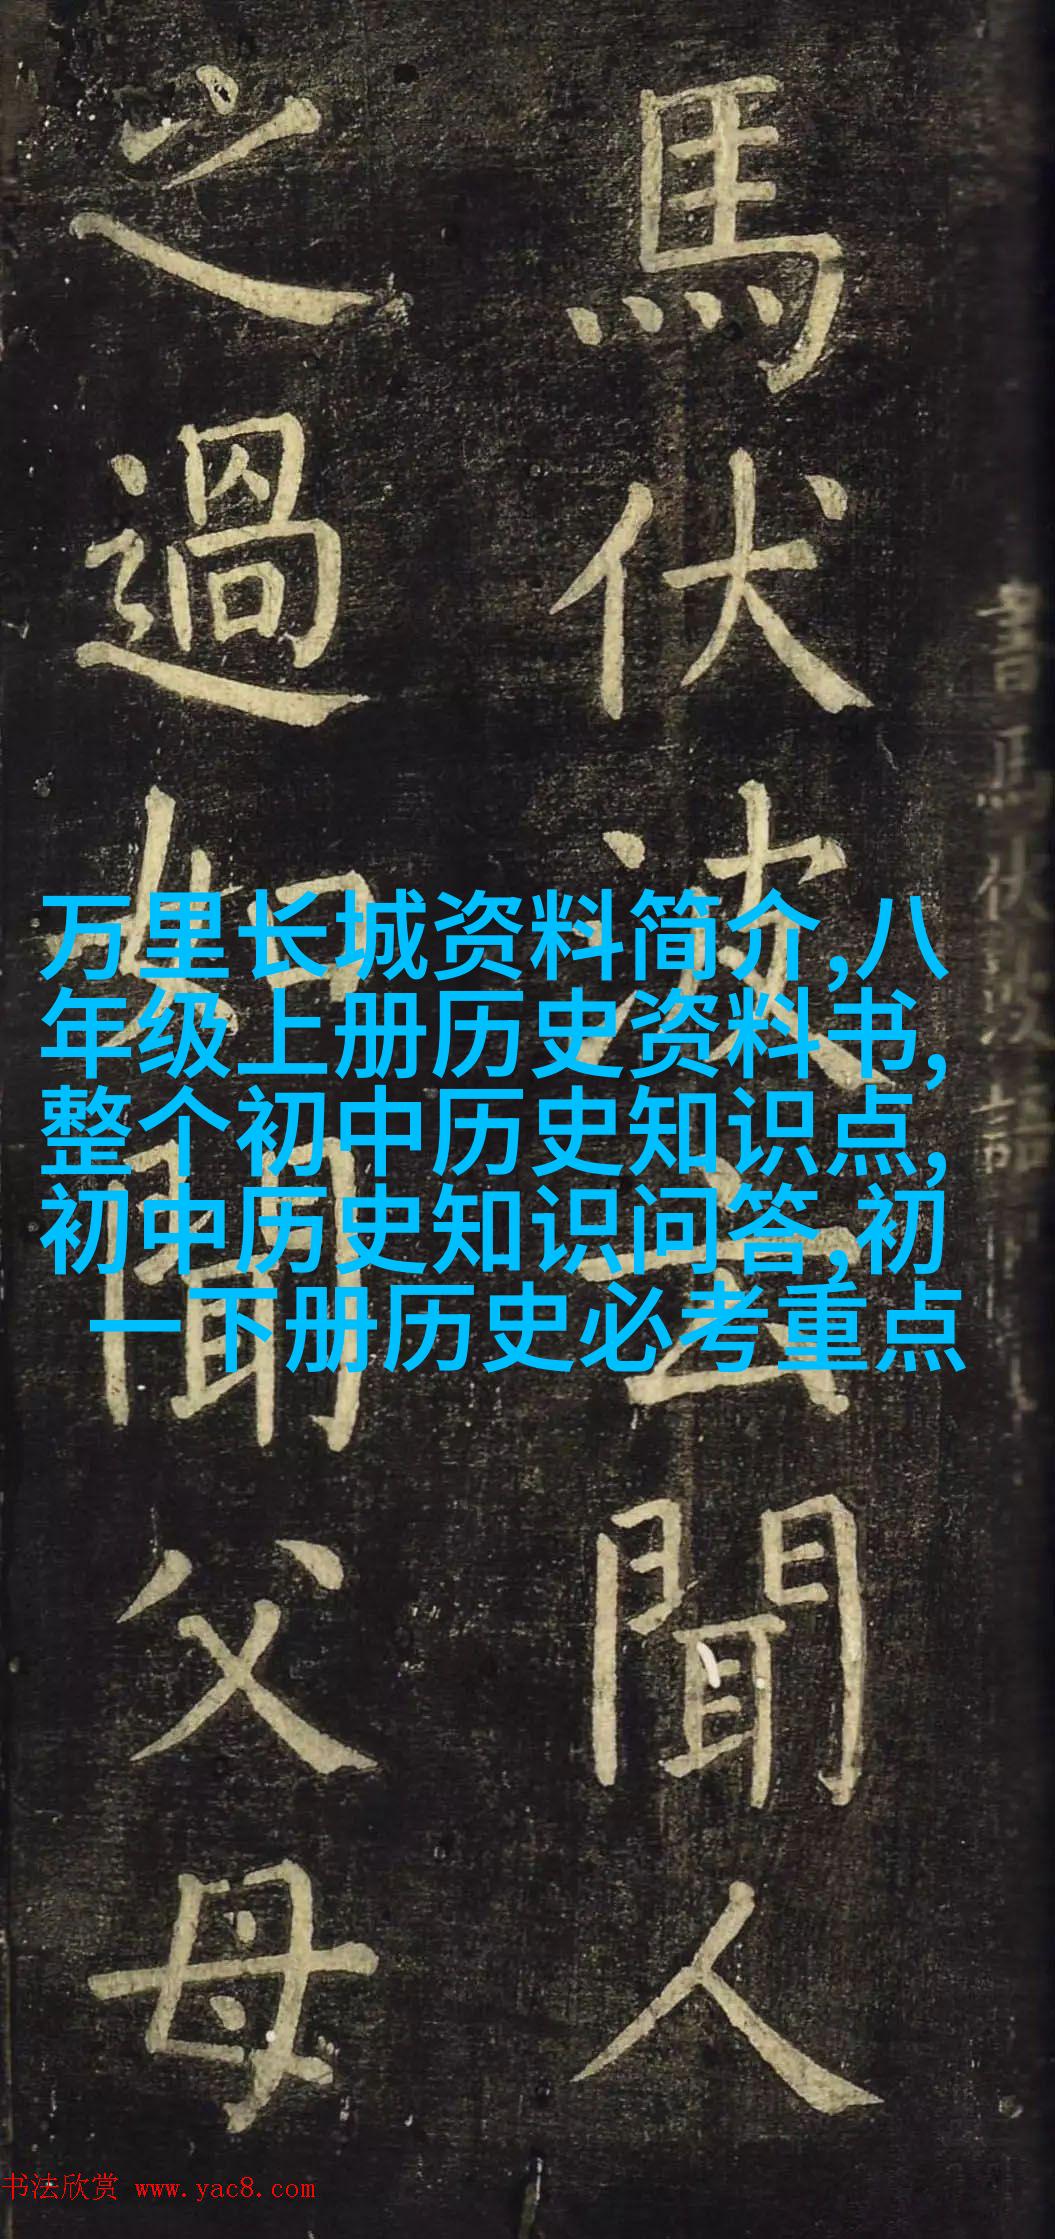 書馬伏波語
馬伏波云聞人
之過如聞父母
万里长城资料简介,八
年级上册历史资料书,
整个初中历史知识点,
初中历史知识问答,初
一下册历史必考重点
书法欣赏 www.yac8.com